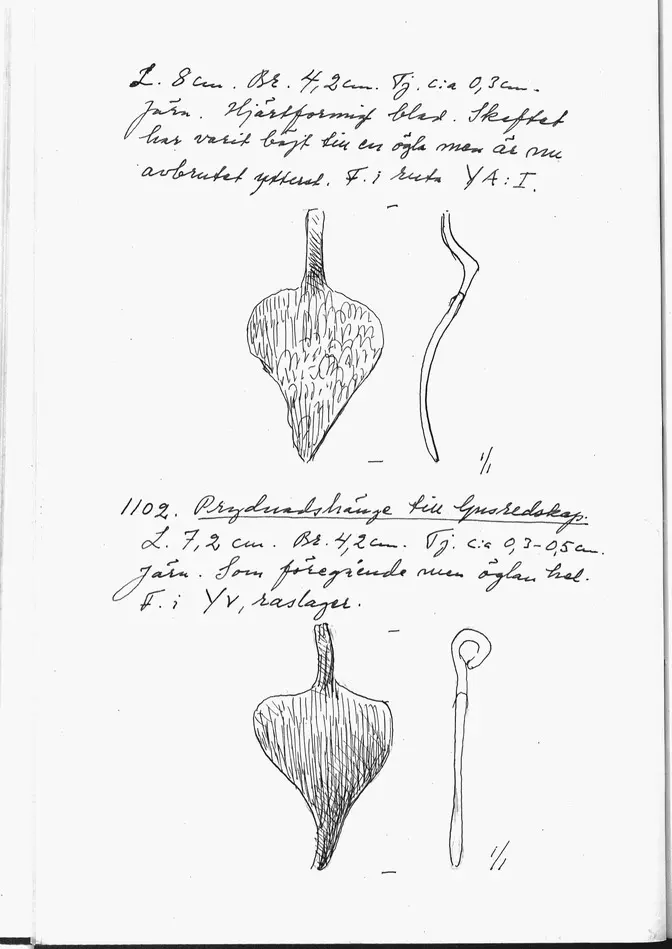 L. 8 cm. Br. 4,2 cm. Tj. c:a 0,3 cm.
Järn. Hjärtformigt blad. Skaftet
har varit böjt till en ögla men är nu
avbrutet ytterst. F. i ruta YA:I.
1/1
1102. Prydnadshänge till ljusredskap.
L. 7,2 cm. Br. 4,2 cm. Tj. c:a 0,3-0,5 cm.
Järn. Som föregående men öglan hel.
F. i YV, raslager.
1/1